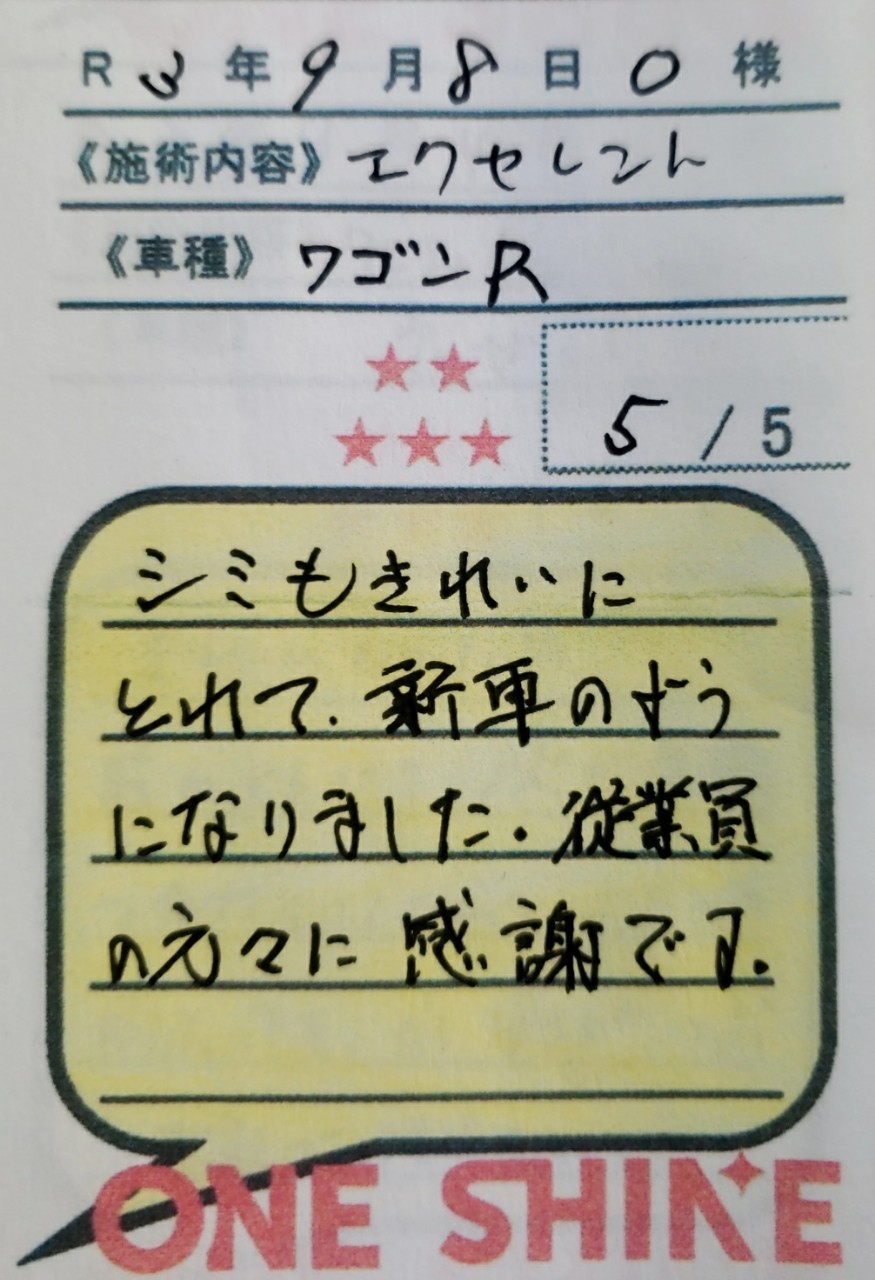 R 3 年 9 月 8 日 O 様
《施術内容》 エクセレント
《車種》 ワゴンR
★★
★★★
5 / 5
シミもきれいに
とれて、新車のよう
になりました。従業員
の方々に感謝です。
ONE SHINE